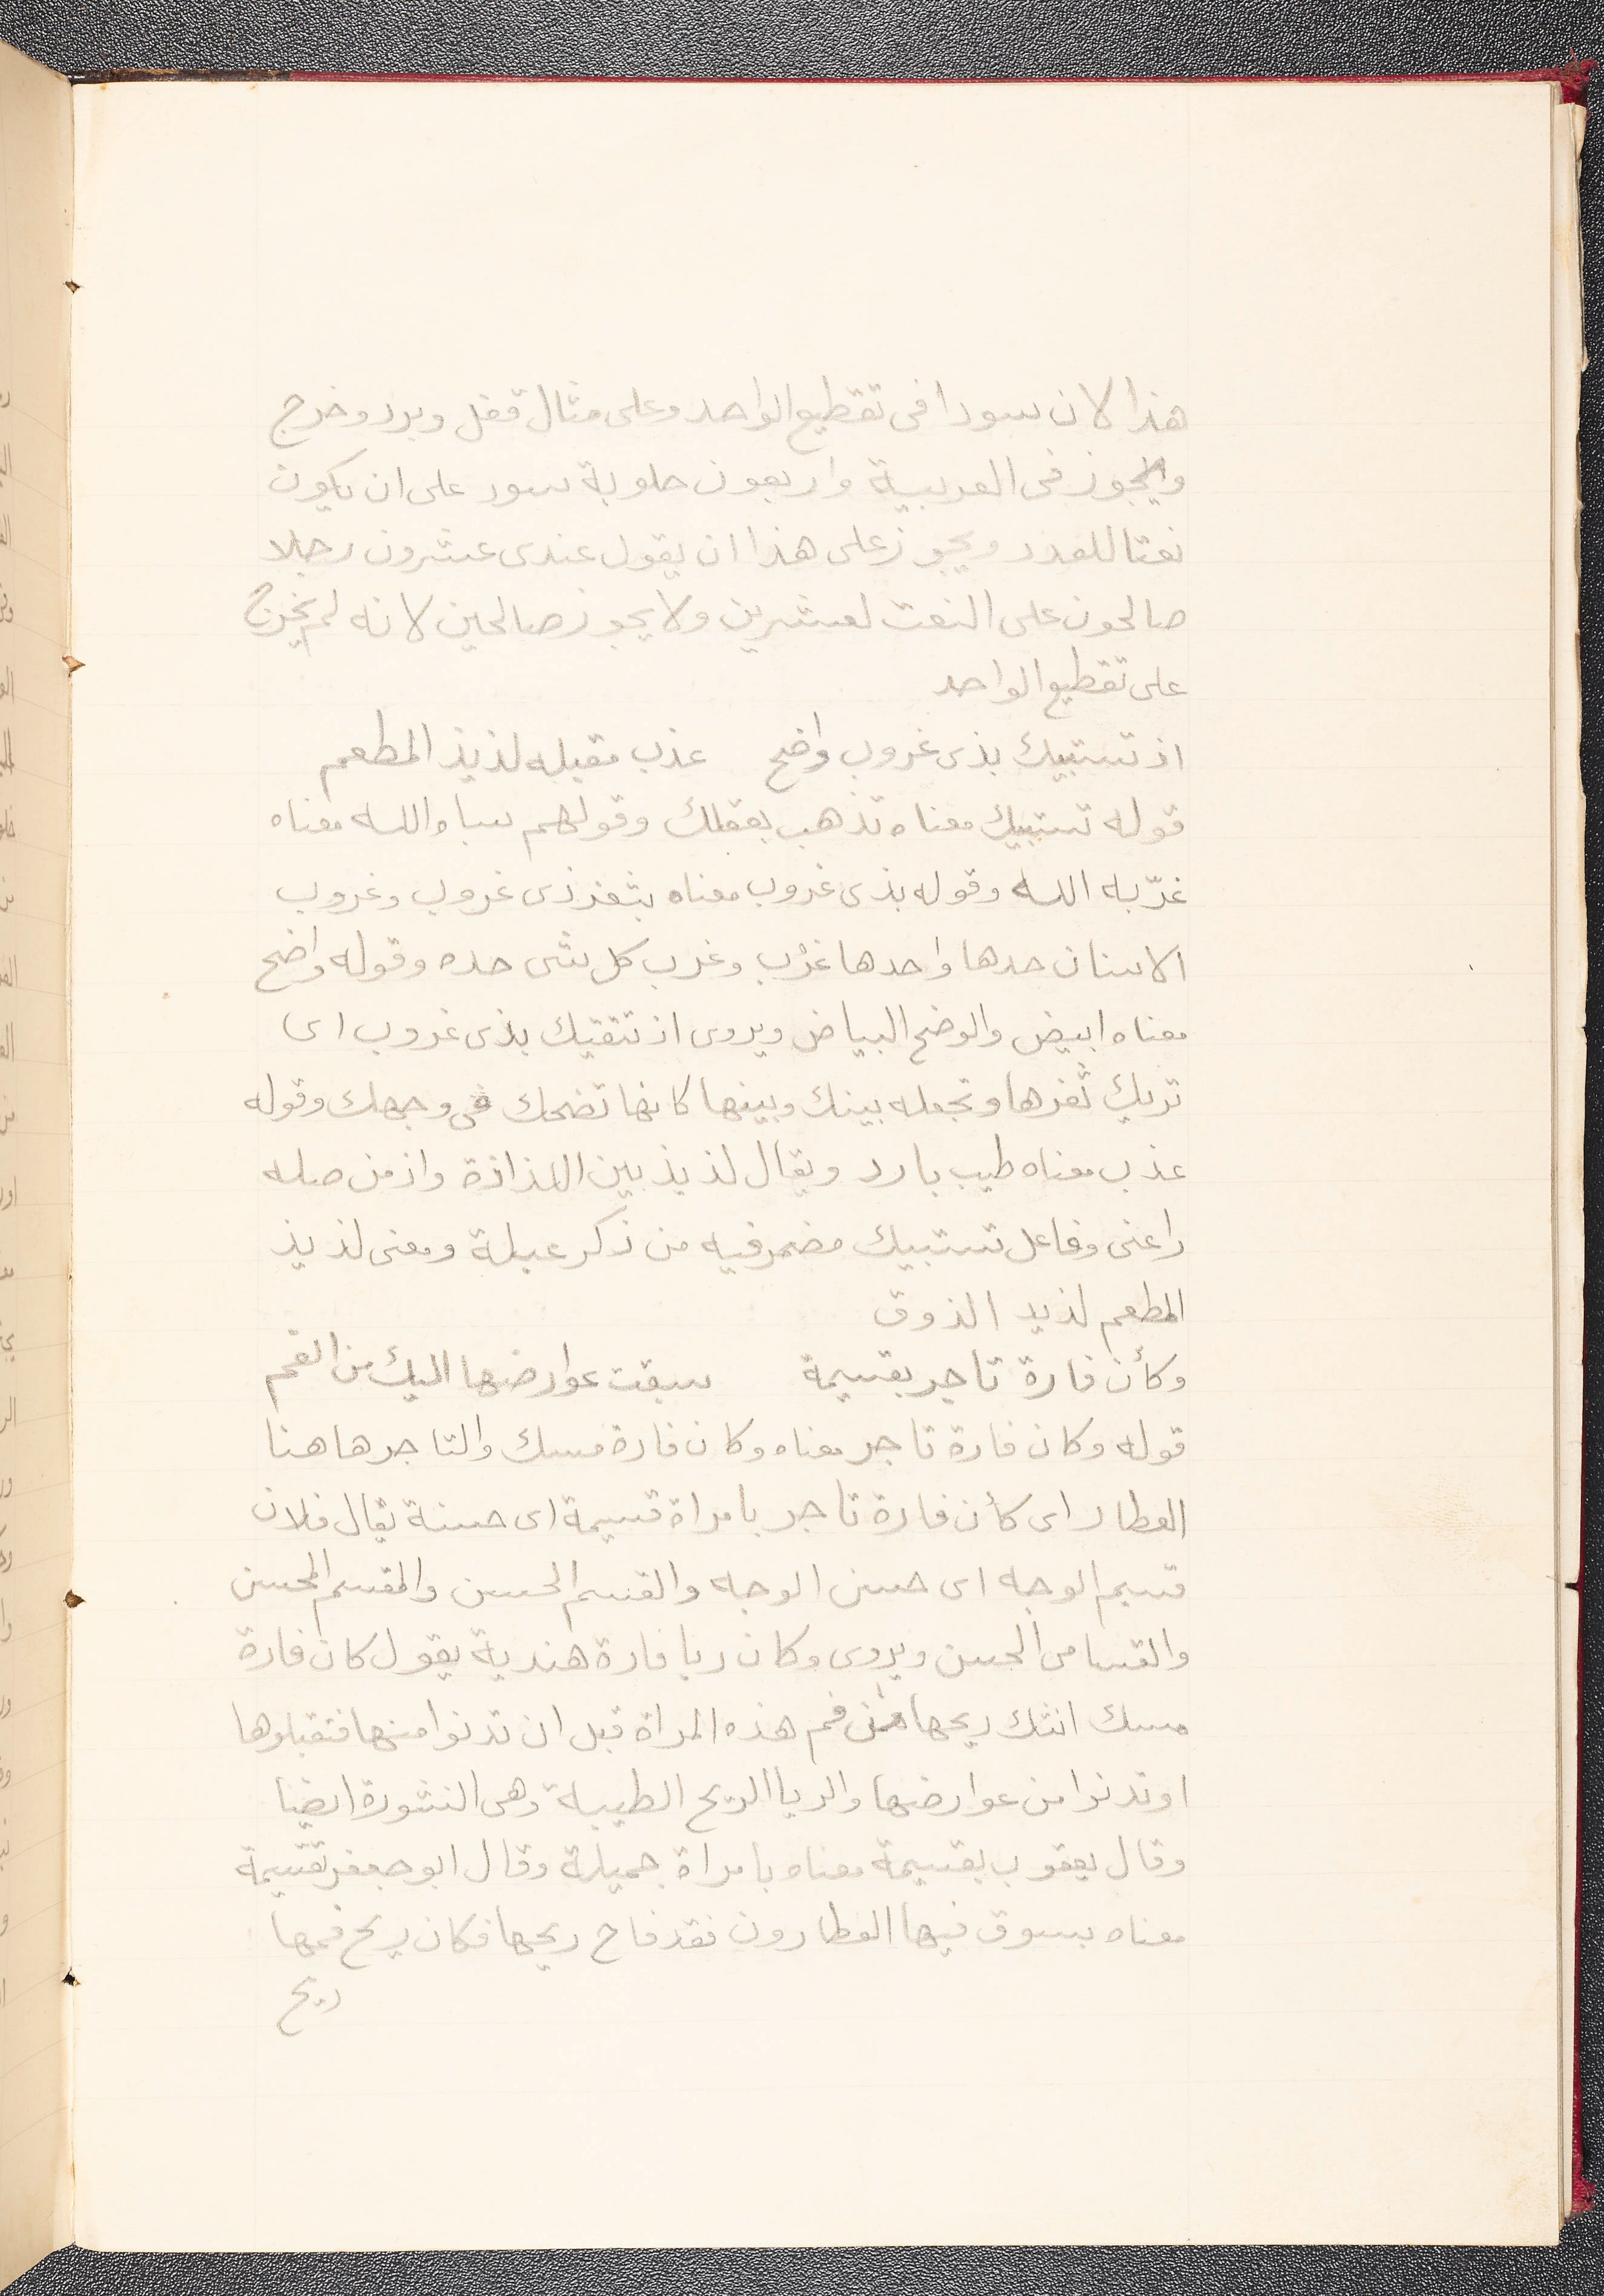 هذا لان سودا فى تقطيع الواحد وعلى مثال قفل وبرد وخرج
ويجوز فى العربية واربعون حلوبة سود على ان يكون
نعتا للعدد ويجوز على هذا ان يقول عندى عشرون رجلا
صالحون على النعت لعشرين ولا يجوز صالحين لانه لم يخرج
على تقطيع الواحد
اذ تستبيك بذى غروب واضح عذب مقبله لذيذ المطعم
قوله تستبيك معناه تذهب بعقلك وقولهم سباه الله معناه
غرّبه الله وقوله بذى غروب معناه بثغر ذى غروب وغروب
الاسنان حدها واحدها غرْب وغرب كل شى حده وقوله واضح
معناه ابيض والوضح البياض ويروى اذ تتقيك بذى غروب اى
تريك ثغرها وتجعله بينك وبينها كانها تضحك فى وجهك وقوله
عذب معناه طيب بارد ويقال لذيذ بين اللذاذة واذ من صله
راعنى وفاعل تستبيك مضمر فيه من ذكر عبلة ومعنى لذيذ
المطعم لذيد الذوق
وكأن فارة تاجر بقسيمة سبقت عوارضها اليك من الفم
قوله وكان فارة تاجر معناه وكان فارة مسك والتاجر هاهنا
العطار اى كأن فارة تاجر بامراة قسيمة اى حسنة يقال فلان
قسيم الوجه اى حسن الوجه والقسم الحسن والمقسم المحسن
والقسامى الحسن ويروى وكان ريا فارة هندية يقول كان فارة
مسك انتك ريحها من فم هذه المراة قبل ان تدنوا منها فتقبلوها
او تدنوا من عوارضها والريا الريح الطيبة وهى النشورة ايضا
وقال يعقوب بقسيمة معناه بامراة جميلة وقال ابو جعفر بقسيمة
معناه بسوق فيها العطارون فقد فاح ريحها فكان ريح فمها
ريح